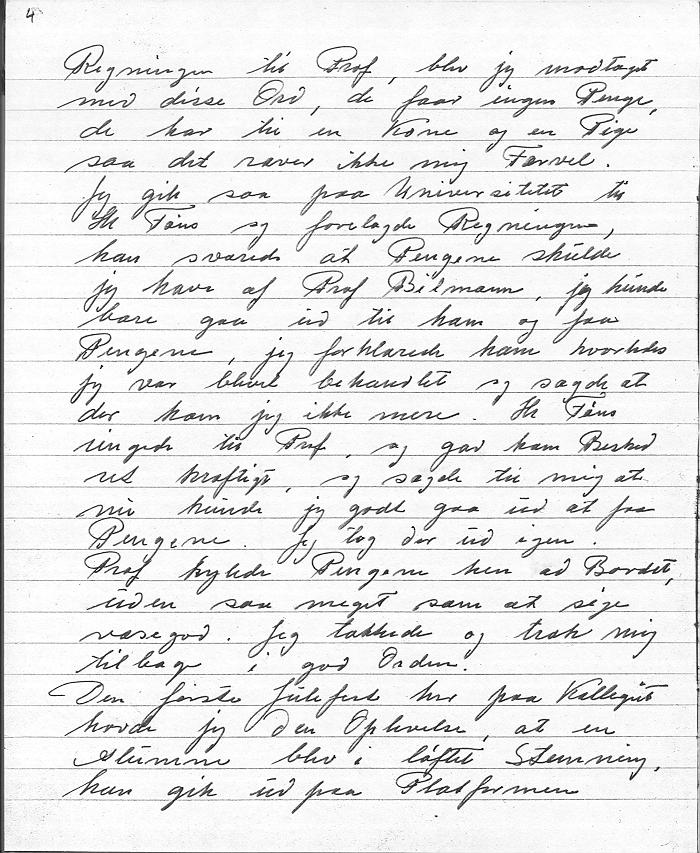 4
Regningen til Prof, blev jeg modtaget
med disse Ord, de faar ingen Penge,
de har til en Kone og en Pige
saa det raver ikke mig Farvel.
Jeg gik saa paa Universitetet til
Hr Føns og forelagde Regningen,
han svarede at Pengene skulde
jeg have af Prof Bilmann, jeg kunde
bare gaa ud til ham og faa
Pengene, jeg forklarede ham hvorledes
jeg var blevet behandlet og sagde at
der kom jeg ikke mere. Hr Føns
ringede til Prof, og gav ham Besked
ret kraftigt, og sagde til mig at
nu kunde jeg godt gaa ud at faa
Pengene. Jeg tog der ud igen.
Prof hylede Pengene hen ad Bordet,
uden saa meget som at sige
vasegod. Jeg takkede og trak mig
tilbage i god Orden.
Den første Julefest her paa Kollegiet
havde jeg den Oplevelse, at en
Alumne blev i løftet Stemning,
han gik ud paa Platformen